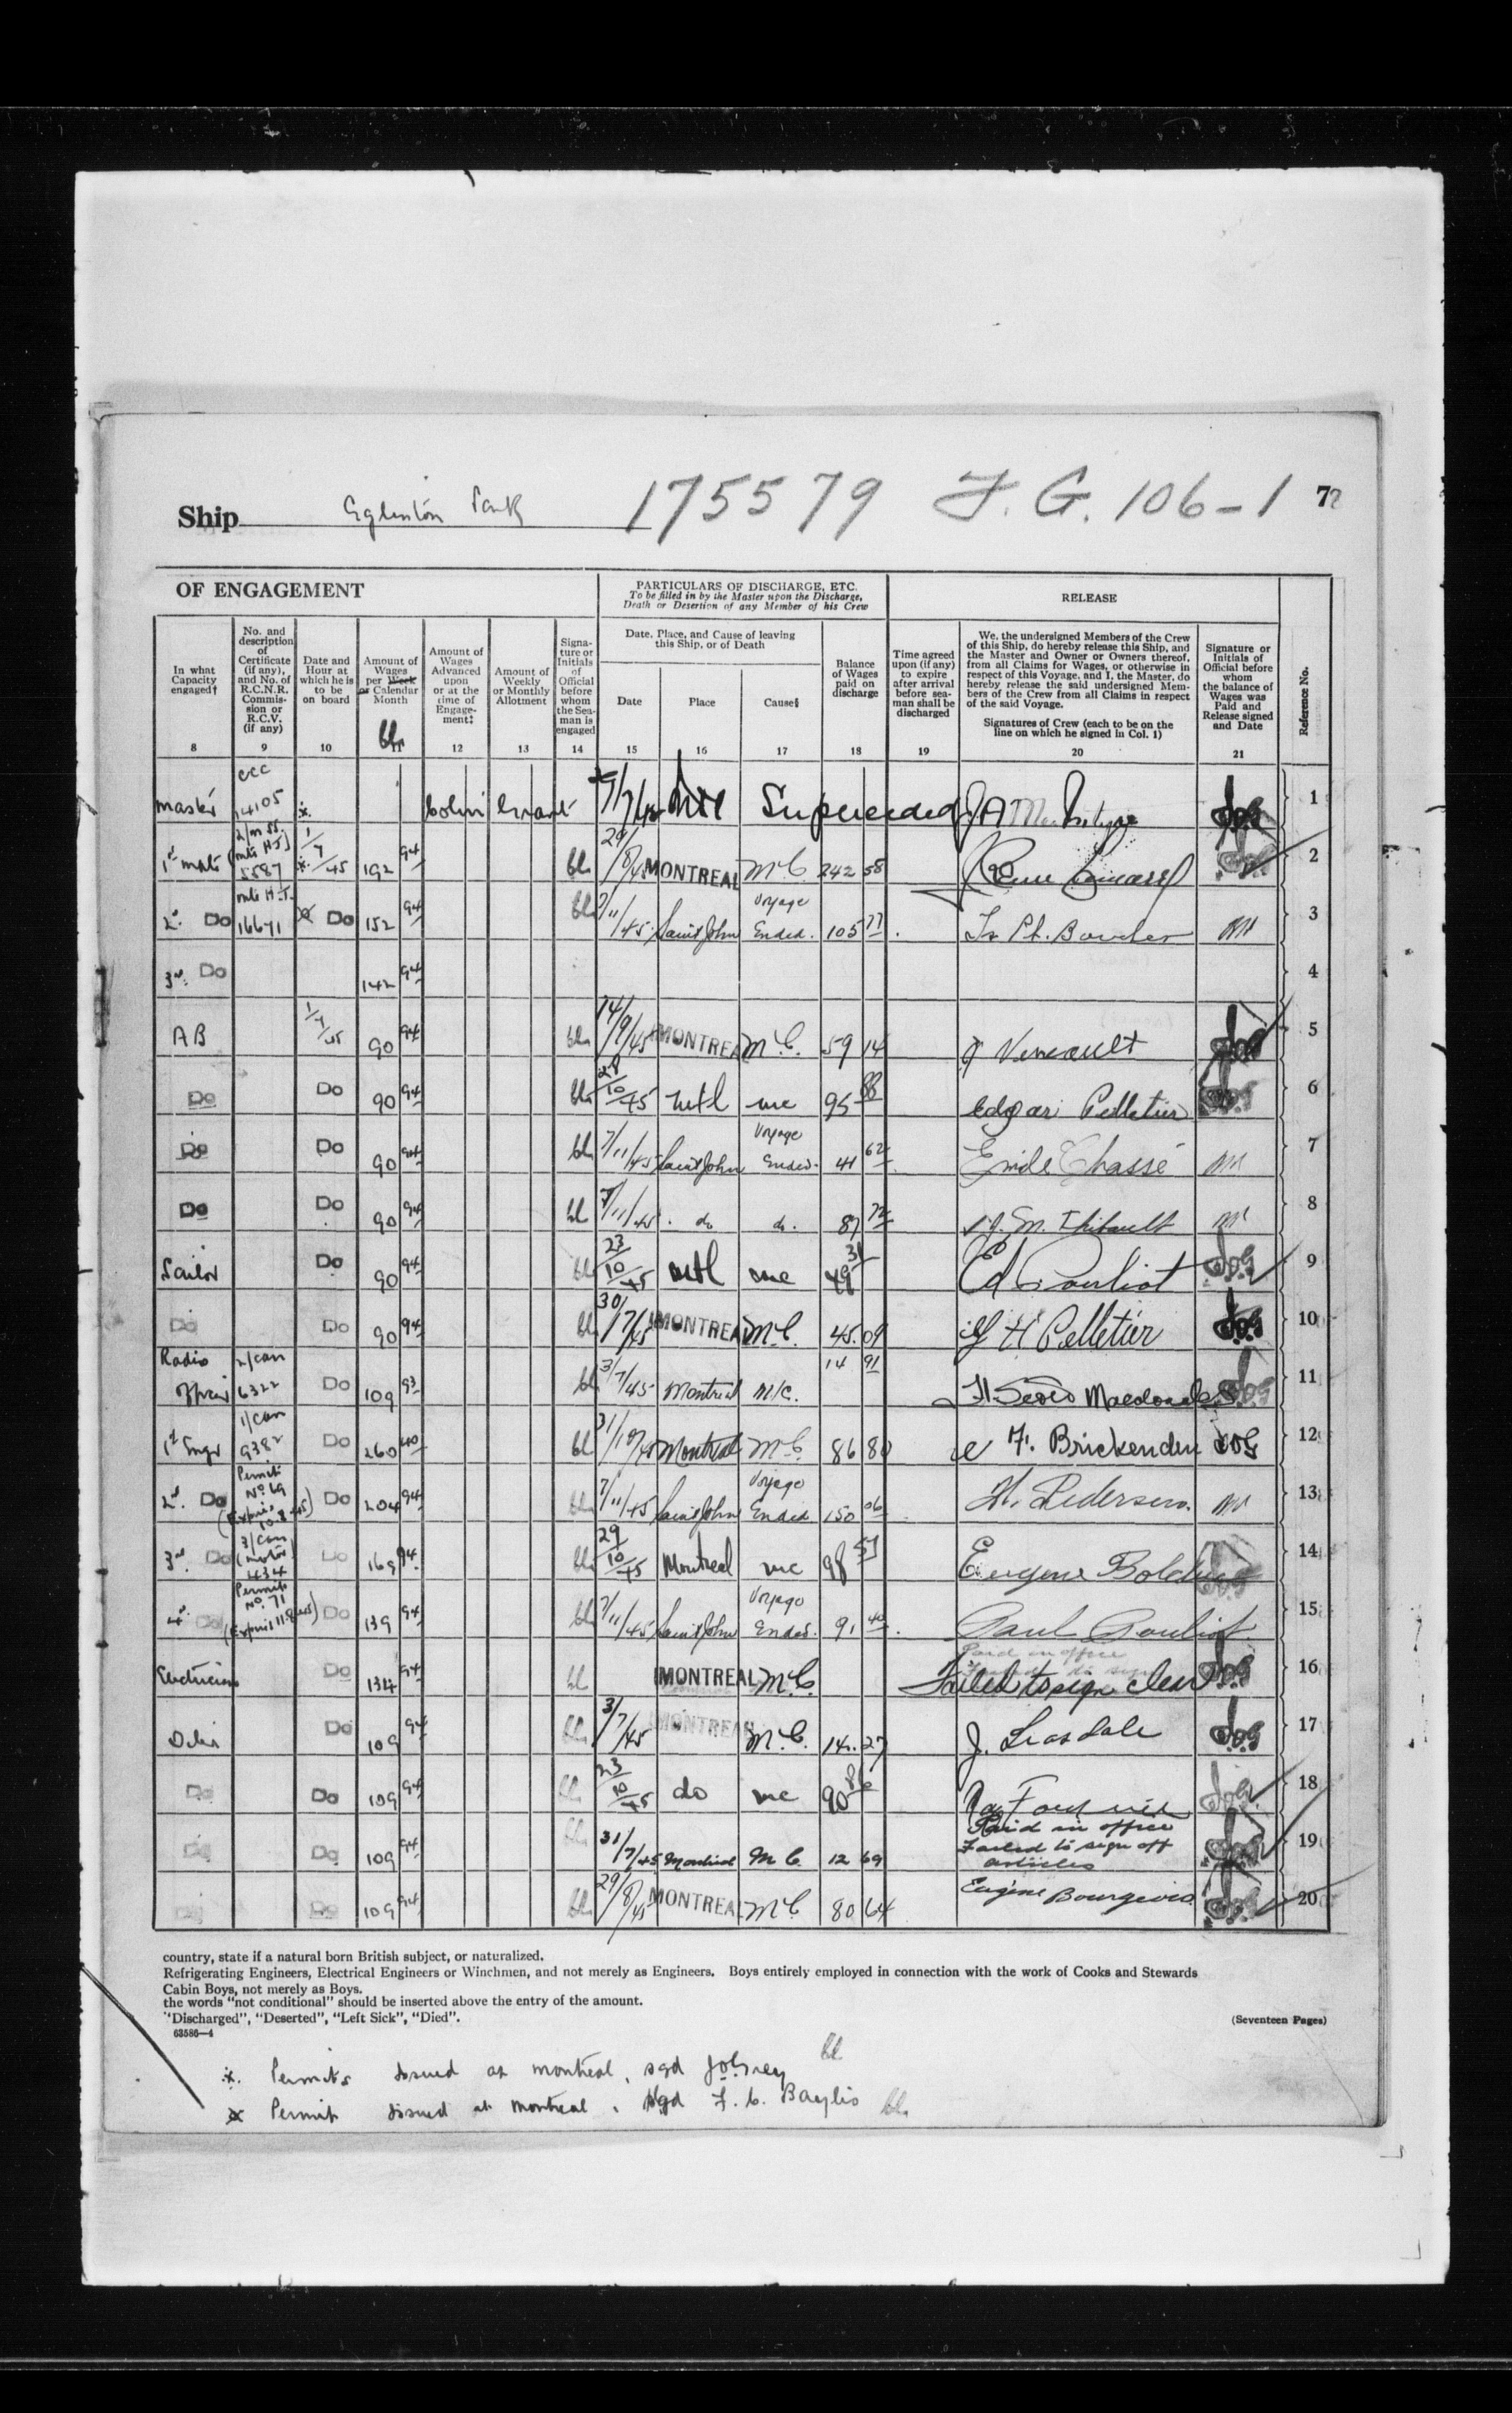 Ship Eglinton Park 175579 F. G. 106-1 72
OF ENGAGEMENT
PARTICULARS OF DISCHARGE, ETC.
To be filled in by the Master upon the Discharge,
Death or Desertion of any Member of his Crew
RELEASE
In what Capacity engaged†
No. and description of Certificate (if any), and No. of R.C.N.R. Commission or R.C.V. (if any)
Date and Hour at which he is to be on board
Amount of Wages per Week or Calendar Month
Amount of Wages Advanced upon or at the time of Engagement‡
Amount of Weekly or Monthly Allotment
Signature or Initials of Official before whom the Seaman is engaged
Date, Place, and Cause of leaving this Ship, or of Death
Date
Place
Cause§
Balance of Wages paid on discharge
Time agreed upon (if any) to expire after arrival before seaman shall be discharged
We, the undersigned Members of the Crew
of this Ship, do hereby release this Ship, and
the Master and Owner or Owners thereof,
from all Claims for Wages, or otherwise in
respect of this Voyage, and I, the Master, do
hereby release the said undersigned Mem-
bers of the Crew from all Claims in respect
of the said Voyage.
Signatures of Crew (each to be on the
line on which he signed in Col. 1)
Signature or Initials of Official before whom the balance of Wages was Paid and Release signed and Date
Reference No.
8 9 10 11 12 13 14 15 16 17 18 19 20 21
Master CCC 14105 Mtl Superceded 1
1st Mate 5587 1/7/45 192 94 29/8/45 MONTREAL M.C. 242 58 2
2d Do Mate H.T. 16671 Do 152 94 7/11/45 Saint John Voyage Ended. 105 77 3
3rd Do 142 94 4
AB 1/7/45 90 94 14/9/45 MONTREAL M.C. 59 14 5
Do Do 90 94 28/10/45 Mtl mc 95 88 Edgar Pelletier 6
Do Do 90 94 7/11/45 Saint John Voyage Ended. 41 62 Emile Chassé 7
Do Do 90 94 7/11/45 do do. 87 72 J. M. Thibault 8
Sailor Do 90 94 23/10/45 Mtl mc 49 31 Ed Pouliot 9
Do Do 90 94 30/7/45 MONTREAL M.C. 45.09 H Pelletier 10
Radio Officer 2/Can 6322 Do 109 93 3/7/45 Montreal M/C. 14 91 Macdonald 11
1st Engr 1/Can 9382 Do 260 40 31/10/45 Montreal M.C. 86 80 F. Brickenden JOG 12
2d. Do Permit No. 69 Do 204 94 7/11/45 Saint John Voyage Ended 150 06 H. Pedersen. 13
3rd Do 3/Can (motor) 434 Do 169 94 29/10/45 Montreal mc 98 Eugene Bolduc 14
4th Do Permit No. 71 Do 139 94 7/11/45 Saint John Voyage Ended. 91 40 Paul Pouliot 15
Electrician Do 134 94 MONTREAL M.C. Failed to sign clear 16
Oiler Do 109 94 3/7/45 MONTREAL M.C. 14.27 J. Leasdale JOG 17
Do Do 109 94 23/10/45 do mc 90 86 18
Do Do 109 94 31/7/45 Montreal M.C. 12 69 Paid in office Failed to sign off articles 19
Do Do 109 94 29/8/45 MONTREAL M.C. 80 64 Eugène Bourgeois 20
country, state if a natural born British subject, or naturalized.
Refrigerating Engineers, Electrical Engineers or Winchmen, and not merely as Engineers. Boys entirely employed in connection with the work of Cooks and Stewards
Cabin Boys, not merely as Boys.
the words "not conditional" should be inserted above the entry of the amount.
"Discharged", "Deserted", "Left Sick", "Died".
63586—4
(Seventeen Pages)
Permits issued at Montreal, sgd
Permit issued at Montreal, sgd F. C. Baylis